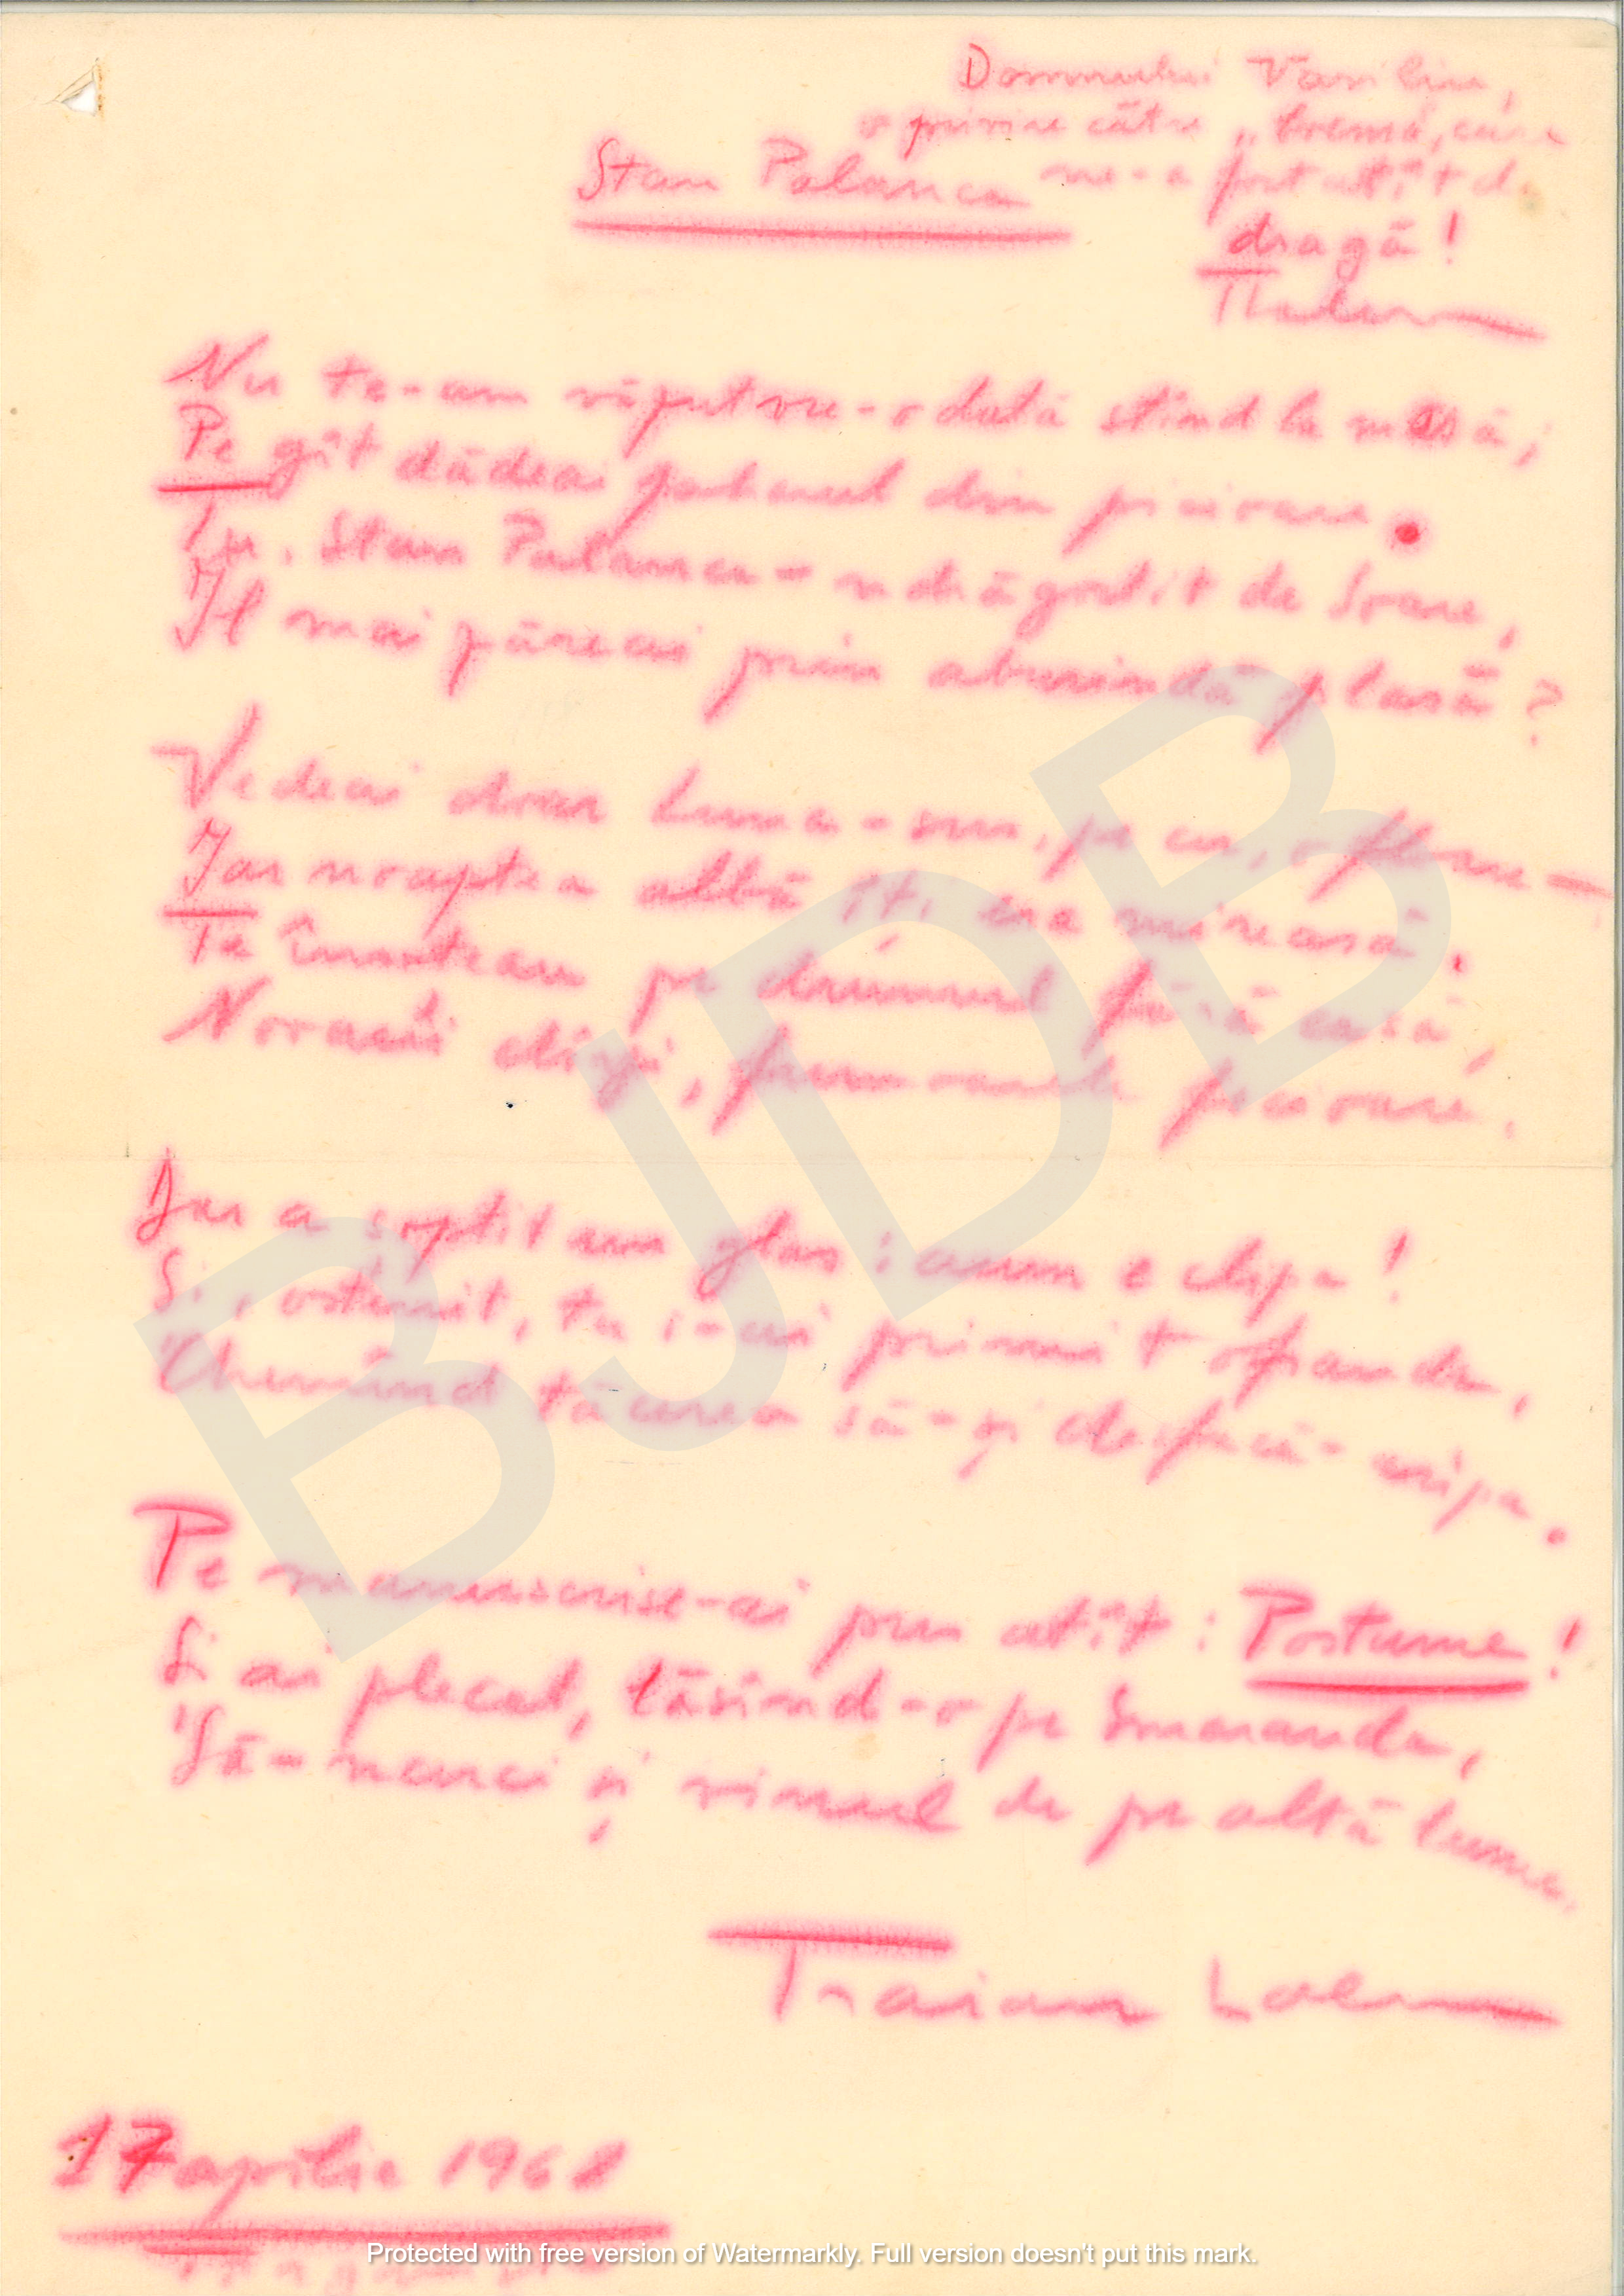 Domnului Vasiliu,
o privire către „boema, care
ne-a fost atît de
dragă!
TLalescu
Stan Palanca
Nu te-am văzut vre-o dată stînd la masă;
Pe gît dădeai paharul din picioare.
Tu, Stan Palanca - ndrăgostit de Soare,
Il mai zăreai prin aburindă plasă?
Vedeai doar Luna-sus, pe cer, o floare —
Iar noaptea albă îți era mireasă.
Te însoteau pe drumul fără casă,
Noroaie clisă, fumoasele picioare.
Iar a șoptit un glas: acum e clipa!
Si, ostenit, tu i-ai primit ofranda,
Chemînd tăcerea să-și desfacă-aripa.
Pe manuscrise-ai pus atît: Postume!
Si ai plecat, lăsînd-o pe Smaranda,
Să-ncerci și vinul de pe altă lume.
Traian Lalescu
17 aprilie 1968
BJDB
Protected with free version of Watermarkly. Full version doesn't put this mark.